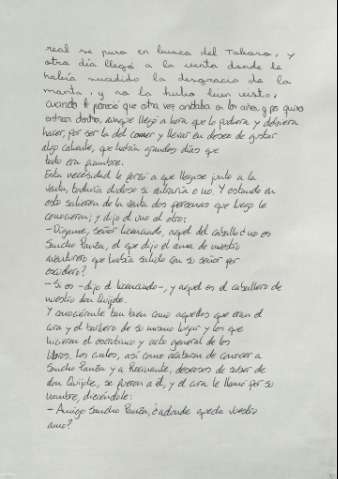 real se puso en busca del Toboso, y
otro día llegó a la venta donde le
había sucedido la desgracia de la
manta, y no la hubo bien visto,
cuando le pareció que otra vez andaba en los aires, y no quiso
entrar dentro, aunque llegó a hora que lo pudiera y debiera
hacer, por ser la del comer y llevar en deseo de gustar
algo caliente, que había grandes días que
todo era fiambre.
Esta necesidad le forzó a que llegase junto a la
venta, todavía dudoso si entraría o no. Y estando en
esto salieron de la venta dos personas que luego le
conocieron; y dijo el uno al otro:
-Dígame, señor licenciado, aquel del caballo ¿no es
Sancho Panza, el que dijo el ama de nuestro
aventurero que había salido con su señor por
escudero?
-Sí es -dijo el licenciado-, y aquel es el caballero de
nuestro don Quijote.
Y conociéronle tan bien como aquellos que eran el
cura y el barbero de su mismo lugar y los que
hicieron el escrutinio y acto general de los
libros. Los cuales, así como acabaron de conocer a
Sancho Panza y a Rocinante, deseosos de saber de
don Quijote, se fueron a él, y el cura le llamó por su
nombre, diciéndole:
- Amigo Sancho Panza, ¿adónde queda vuestro
amo?